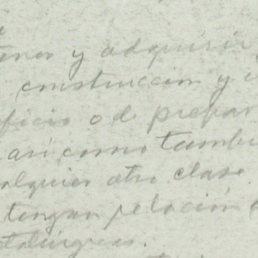 tener y adquirir
construccion y
ficio o d prepar
asi como tambi
alquier otra clase
tengan relación
talúrgicas.